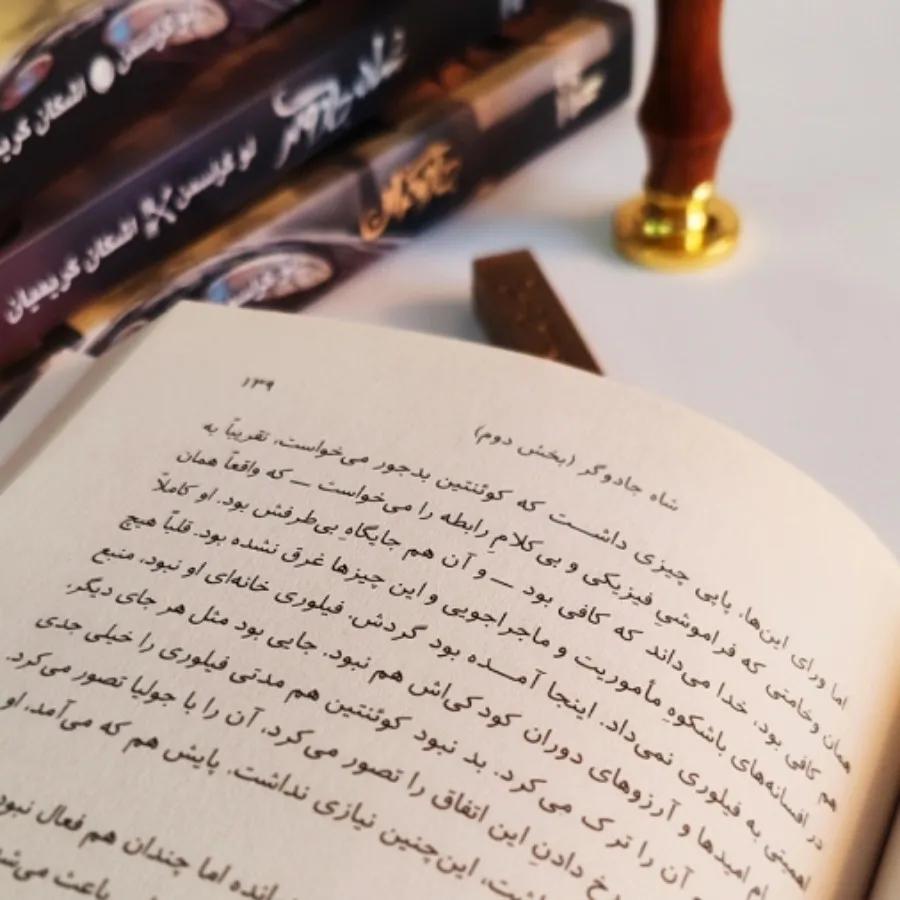 اشکان کریمیان
لو گراسمن
اشکان کریمیان
شاه جادوگر
۱۳۹
شاه جادوگر (بخش دوم)
اما ورای این‌ها، پاپی چیزی داشت که کوئنتین بدجور می‌خواست، تقریباً به
همان وخامتی که فراموشیِ فیزیکی و بی‌کلامِ رابطه را می‌خواست — که واقعاً همان
هم کافی بود، خدا می‌داند که کافی بود — و آن هم جایگاهِ بی‌طرفش بود. او کاملاً
در افسانه‌های باشکوهِ مأموریت و ماجراجویی و این چیزها غرق نشده بود. قلباً هیچ
اهمیتی به فیلوری نمی‌داد. اینجا آمده بود گردش. فیلوری خانه‌ای او نبود، منبع
امیدها و آرزوهای دوران کودکی‌اش هم نبود. جایی بود مثل هر جای دیگر،
آن را ترک می‌کرد. بد نبود کوئنتین هم مدتی فیلوری را خیلی جدی
رخ دادنِ این اتفاق را تصور می‌کرد، آن را با جولیا تصور می‌کرد.
این‌چنین نیازی نداشت. پایش هم که می‌آمد، او
اما چندان هم فعال نبود
باعث می‌شد